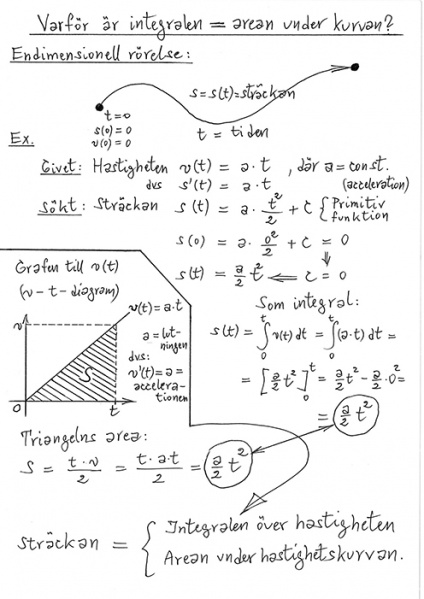 Varför är integralen = arean under kurvan?
Endimensionell rörelse:
s = s(t) = sträckan
t = 0
s(0) = 0
v(0) = 0
t = tiden
Ex.
Givet: Hastigheten v(t) = a · t , där a = const.
dvs s'(t) = a · t (acceleration)
Sökt: Sträckan s(t) = a · t²/2 + C { Primitiv funktion
s(0) = a · 0²/2 + C = 0
⇓
s(t) = a/2 t² ⇐ C = 0
Grafen till v(t)
(v – t – diagram)
v(t) = a · t
v
a = lut-
ningen
dvs:
v'(t) = a =
accelera-
tionen
S
0
t
Som integral:
s(t) = ∫₀ᵗ v(t) dt = ∫₀ᵗ (a·t) dt =
= [a/2 t²]₀ᵗ = a/2 t² – a/2 · 0² =
= a/2 t²
Triangelns area:
S = t · v/2 = t · a · t/2 = a/2 t²
Sträckan = { Integralen över hastigheten
Arean under hastighetskurvan.